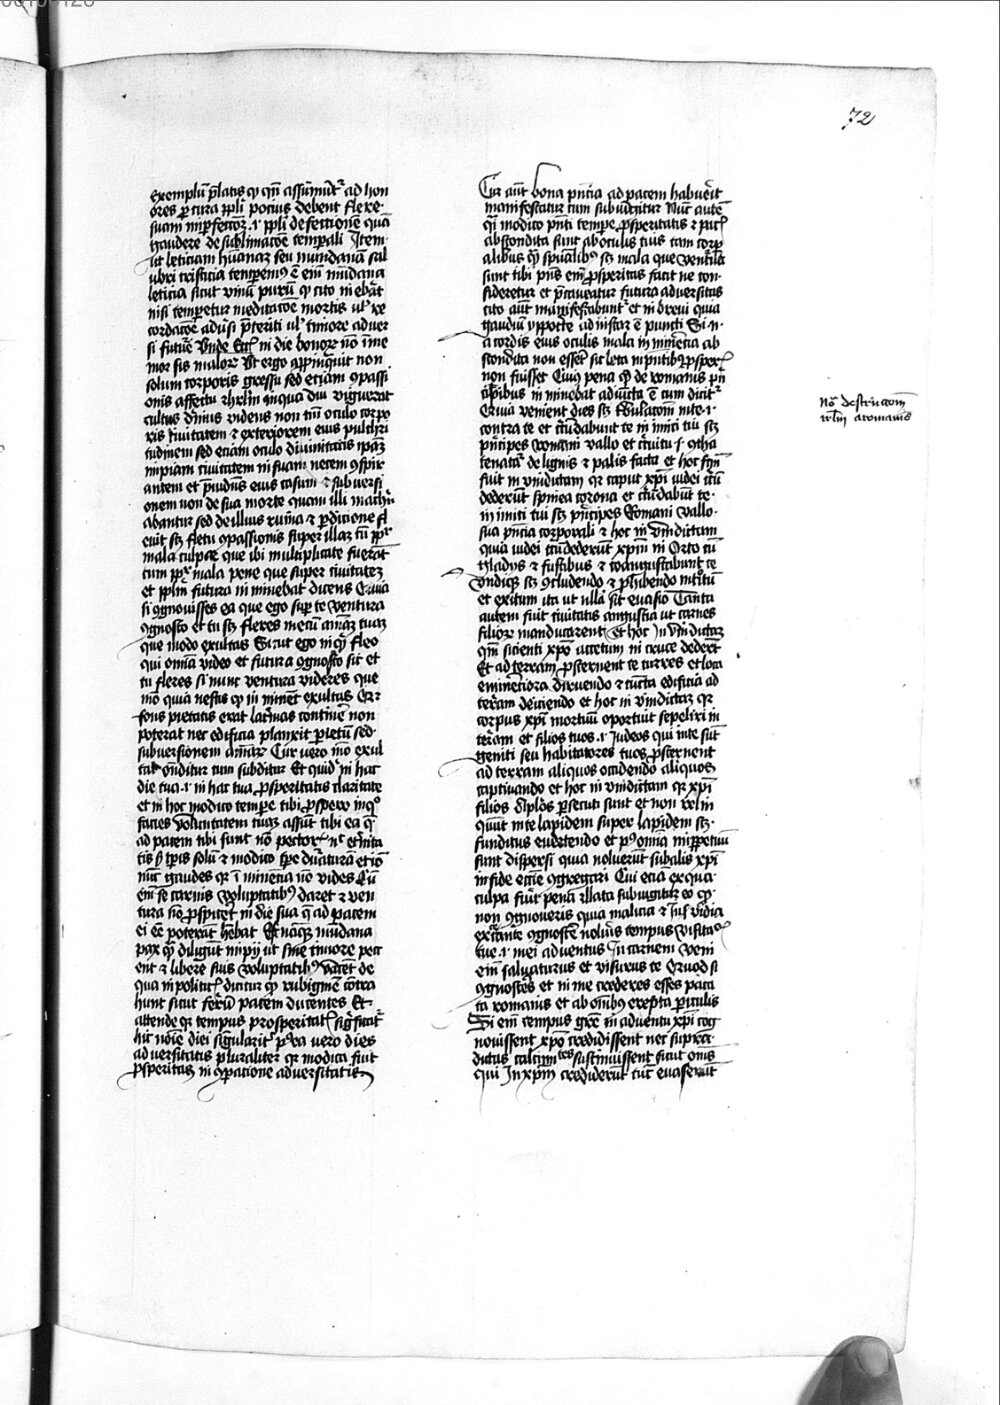 72
exemplū p̄latis qͥ qn̄ assūmūtᷣ ad hon
ores ꝑ cura ppl̄i pocius debent flere
suam inperfectōꝫ .i. ppl̄i defectionē quā
gaudere de sublimacōe temꝑali Item
ut leticiam huānaꝫ seu mundanā sal
ubri tristicia temperemꝰ ē em̄ mūdana
leticia sicut vinū purū qͥ cito inebriat
nisi temperetur meditacōe mortis ul᷑ re
cordacōe aduersi p̄teriti ul᷑ timore aduer
si futuri Vnde Ecc᷑ in die bonoꝝ nō īme
mor sis maloꝝ Vt ergo appinquit non
solum corporis gressu sed eciam ꝯpassi
onis affectu ihrl̄m inqua diu viguerat
cultus diuinus videns non tm̄ oculo corpo
ris ciuitatem ⁊ exteriorem eius pulchri
tudinem sed eciam oculo diuinitatis ipaꝫ
impiam ciuitatem in suam necem ꝯspir
antem et p̄uidens eius casum ⁊ subuersi
onem non de sua morte quam illi machi
abantur sed de illius ruina ⁊ ꝑdicione fl
euit sꝫ fletu ꝯpassionis super illaꝫ tū ꝓpᷣ
mala culpe que ibi multiplicate fuerāt
tum ꝓpᷣ mala pene que super ciuitatem
et ppl̄m futura in minebāt dicens Quia
si ꝯgnouisses ea que ego suꝑ te ventura
ꝯgnosco et tu sꝫ fleres mecū aīaꝫ tuaꝫ
que modo exultas Sicut ego inqͥ fleo
qui om̄ia video et futura ꝯgnosco sic et
tu fleres si nunc ventura videres que
mō quia nescis qͥ in minent exultas Qꝛ
fons pietatis erat lacrimas continē non
poterat nec edificia planxit ꝑietū sed
subuersionem aīaꝝ Cur vero mō exul
tat on̄ditur cum subditur Et quidē in hac
die tua .i. in hac tua ꝓsperitatis claritate
et in hoc modico tempe tibi ꝓspero inqͦ
facies voluntatem tuaꝫ assūt tibi ea q̄
ad pacem tibi sunt nō pectoris nc̄ eternita
tis sꝫ tp̄is solū ⁊ modico tpe duratura et iō
nūc gaudes qꝛ ī minencia nō vides Cū
em̄ se carnis voluptatibꝰ daret ⁊ ven
tura nō ꝓspicet in die sua q̄ ad pacem
ei eē poterāt habebat Est nāqꝫ mūdana
pax quā diligunt impij ut sine timore pecc
ent ⁊ libere suis voluptatibꝰ vacent de
qua in politic᷑ dicitur qͥ rubiginē contra
hunt sicut ferrū pacem ducentes Et
attende qꝛ tempus prosperitatis sigͣficatᷣ
hic noīe diei singularit᷑ p̄tea vero dies
aduersitatis pluraliter qꝛ modica fuit
ꝓsperitas in ꝯparacione aduersitatis
Cur aūt bona p̄ncia ad pacem habuerit
manifestatur cum subiungitur Nūc autē
qͥ modico p̄nti tempe ꝓsperitatis ⁊ pacis
abscondita sunt ab oculis tuis tam corp
alibus qͣ spūalibꝰ sꝫ mala que ventura
sunt tibi pn̄s em̄ ꝓsperitas facit ne con
sideretur et p̄caueatur futura aduersitas
cito aūt manifestabuntᷣ et in breui quia
gaudiū ypocrite ad instar ē puncti Si n̄
a cordis eius oculis mala in minencia ab
scondita non essēt sic leta in p̄ntibꝰ ꝓsperis
non fuisset Cuius pena qͥ de romanis prin
cipibus in minebat adiuncta ē cum dicitᷣ
Quia venient dies sꝫ tribulacōm inte .i.
contra te et circūdabunt te in imici tui sꝫ
pͥncipes romani vallo et circuitu .i. ꝯtha
tenata᷑ de lignis ⁊ palis facta et hoc sigm
fuit in vindictam qꝛ caput xpī iudei circū
dederūt spinea corona et circūdabūt te
in imici tui sꝫ pͥncipes Romani vallo
sua pn̄cia corporali ⁊ hoc in vindictam
quia iudei circūdederūt xpm̄ in Orto cū
gladiis ⁊ fustibus ⁊ coangustabunt te
vndiqꝫ sꝫ ꝯcludendo ⁊ ꝓhibendo introitū
et exitum ita ut nulla sit euasio Tanta
autem fuit ciuitatis angustia ut carnes
filioꝝ manducarent Et hoc in vindictaꝫ
qn̄ sicienti xp̄o accetum in cruce dederūt
Et ad terram ꝓsternent te turres et loca
eminēciora diruendo ⁊ cūcta edificia ad
terram deiciendo et hoc in vindictaꝫ qꝛ
corpus xpī mortuū oportuit sepeliri in
terām et filios tuos .i. Iudeos qui inte sūt
geniti seu habitatores tuos ꝓsternent
ad terram aliquos occidendo aliquos
captiuando et hoc in vindictam qꝛ xpī
filios discipl̄os ꝑsecuti sunt et non relin
quūt inte lapidem super lapidem sꝫ
funditus euertendo et pꝰ om̄ia in ppetuū
sunt dispersi quia noluerūt sub alis xpī
in fide ecc̄ie ꝯgregari Cui ecia ex qua
culpa fuit pena illata subiūgitur eo qͥ
non ꝯgnoueris quia malicia ⁊ Inuidia
excecante ꝯgnoscē noluisti tempus visitac᷑
tue .i. mei aduentus In carnem veni
em̄ saluaturus et visurus te Quod si
ꝯgnosces et in me crederes esses paca
ta romanis et ab om̄ibus erepta ꝑiculis
Si em̄ tempus gr̄e in aduentu xpī cog
nouissent xp̄o credidissent nec supradictas
calamitates sustinuissent sicut om̄s
qui In xpm̄ crediderūt tūc euaserunt
Nō destructiōm
irl̄m a romanis